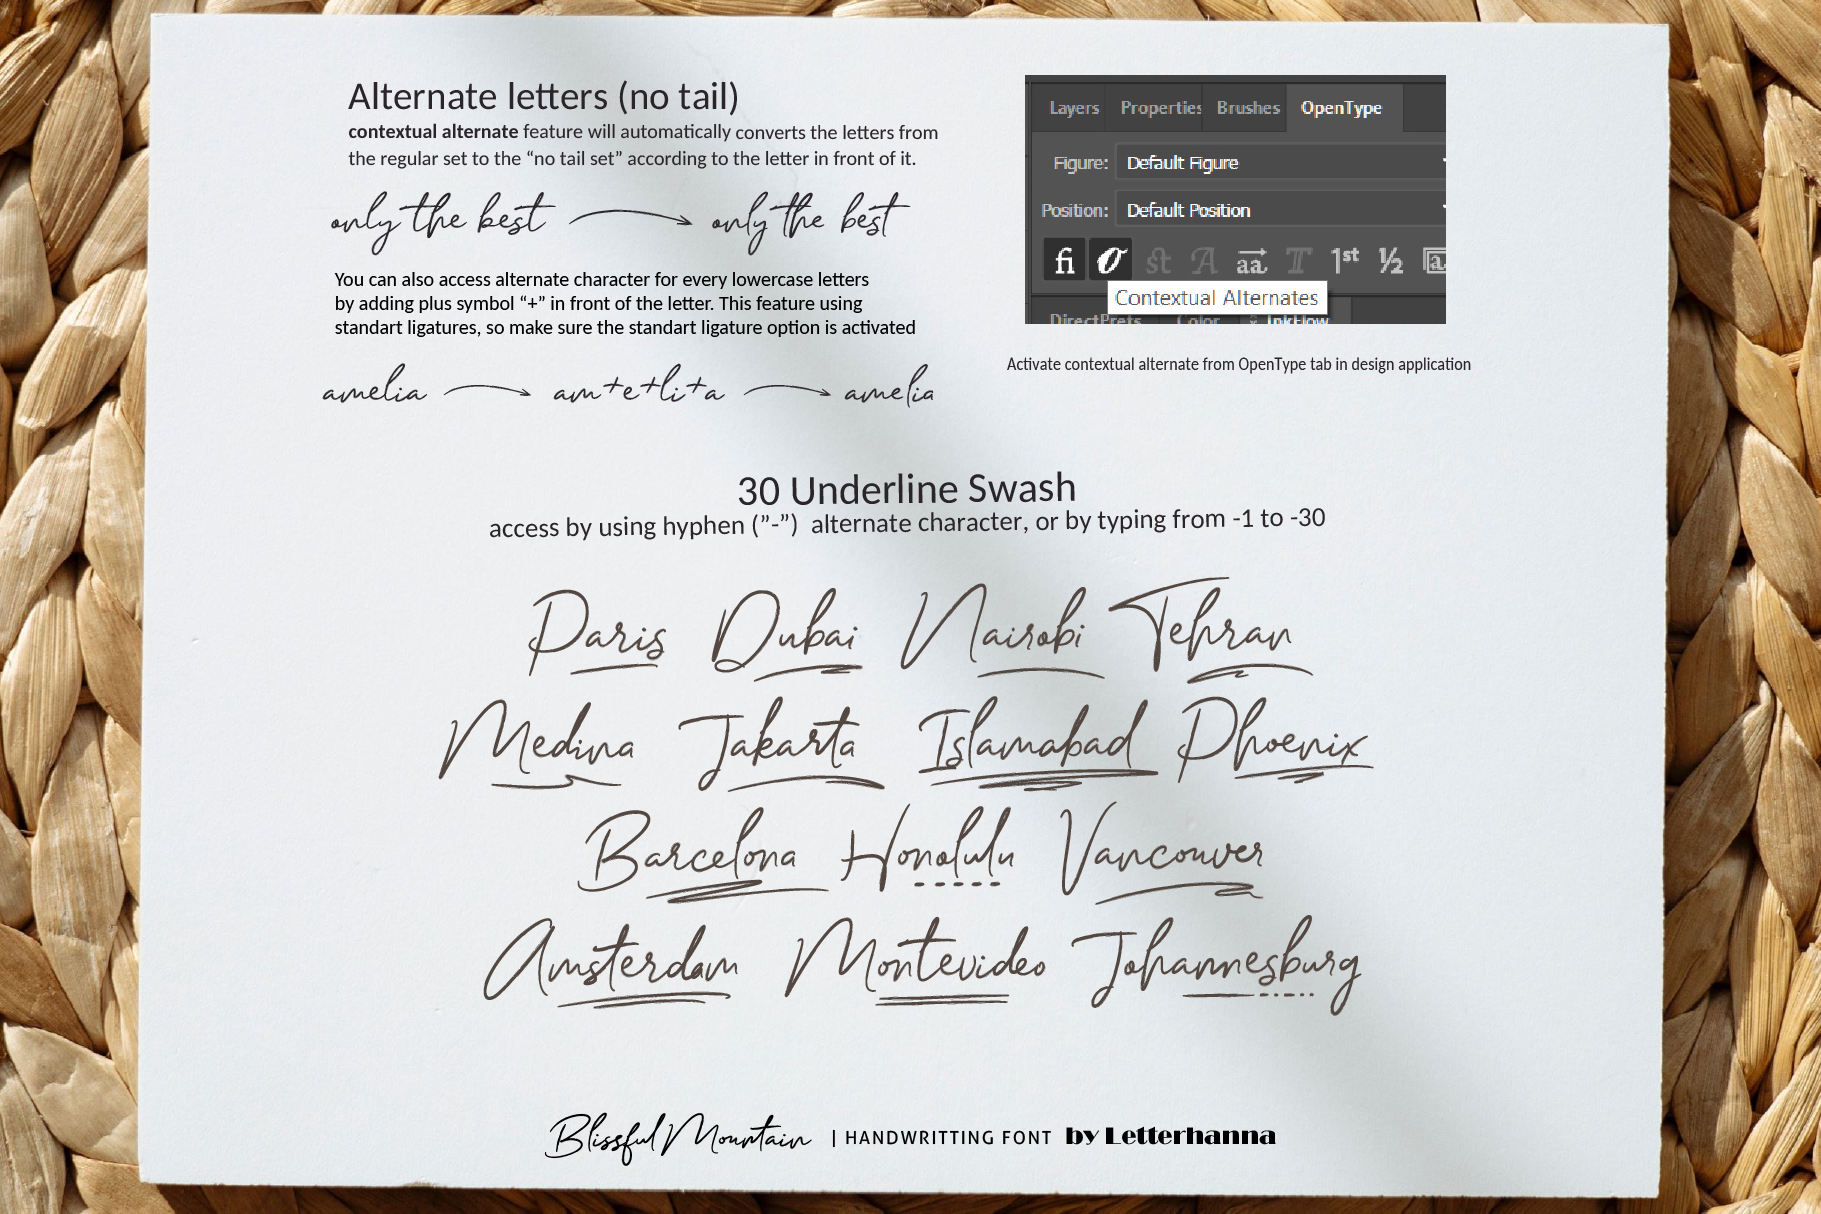 Alternate letters (no tail)
contextual alternate feature will automatically converts the letters from
the regular set to the “no tail set” according to the letter in front of it.
only the best only the best
You can also access alternate character for every lowercase letters
by adding plus symbol “+” in front of the letter. This feature using
standart ligatures, so make sure the standart ligature option is activated
amelia am+e+li+a amelia
Layers Properties Brushes OpenType
Figure: Default Figure
Position: Default Position
fi O st A aa T 1st ½ a
Contextual Alternates
DirectPrefs Color InkFlow
Activate contextual alternate from OpenType tab in design application
30 Underline Swash
access by using hyphen (”-”) alternate character, or by typing from -1 to -30
Paris Dubai Nairobi Tehran
Medina Jakarta Islamabad Phoenix
Barcelona Honolulu Vancouver
Amsterdam Montevideo Johannesburg
Blissful Mountain | HANDWRITTING FONT by Letterhanna